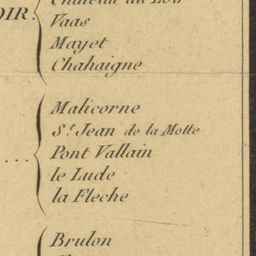 OIR.
Vaas
Mayet
Chahaigne
Malicorne
S.t Jean de la Motte
Pont Vallain
le Lude
la Fleche
Brulon